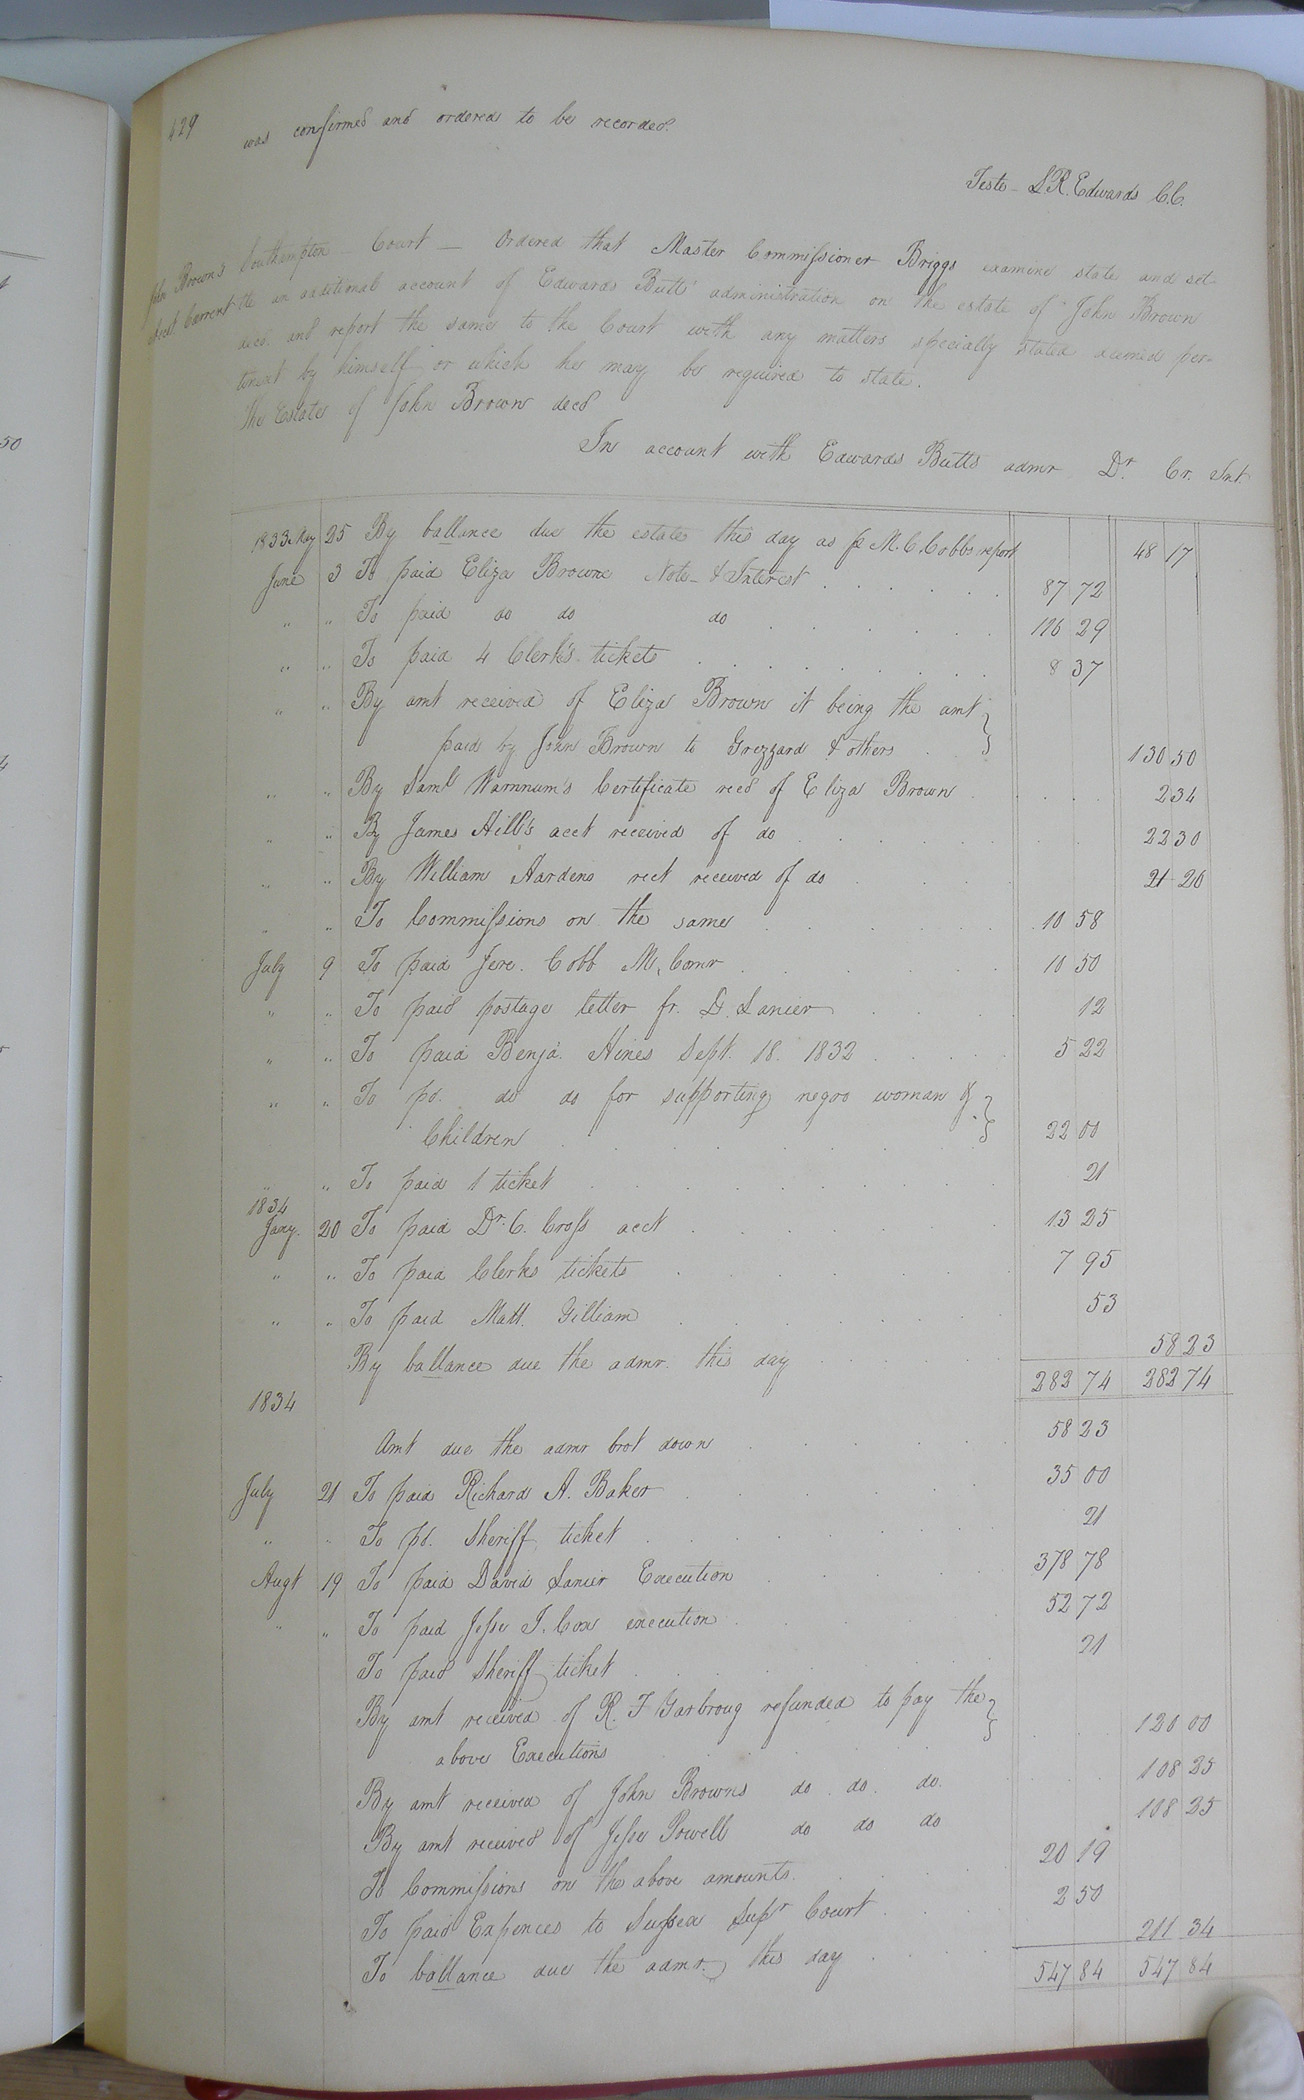 429
was confirmed and ordered to be recorded.
Teste - L.R. Edwards C.C.
John Brown's
Acct Current
Southampton Court - Ordered that Master Commissioner Briggs examine state and set-
tle an additional account of Edwards Butts' administration on the estate of John Brown
decd. and report the same to the Court with any matters specially stated deemed per-
tinent by himself or which he may be required to state.
The Estate of John Brown decd
In account with Edwards Butts admr Dr. Cr. Int
1833 May 25 By ballance due the estate this day as pr M. C. Cobbs report 48 17
June 3 To paid Eliza Browne Note & Interest 87 72
" " To paid do do do 116 29
" " To paid 4 Clerk's tickets 8 37
" " By amt received of Eliza Brown it being the amt
paid by John Brown to Grizzard & others 130 50
" " By Saml Warnnum's Certificate recd of Eliza Brown 2 34
" " By James Hill's acct received of do 22 30
" " By William Hardens rect received of do 21 20
" " To Commissions on the same 10 58
July 9 To paid Jere. Cobb M. Comr 10 50
" " To paid postage letter fr. D. Lanier 12
" " To paid Benja. Hines Sept. 18. 1832 5 22
" " To pd. do do for supporting negro woman &
Children 22 00
" " To paid 1 ticket 21
1834
Jany. 20 To paid Dr. C. Cross acct 13 25
" " To paid Clerks tickets 7 95
" " To paid Matt. Gilliam 53
By ballance due the admr. this day 58 23
282 74 282 74
1834
Amt due the admr brot down 58 23
July 21 To paid Richard A. Baker 35 00
" " To pd. Sheriff ticket 21
Augt 19 To paid David Lanier Execution 378 78
" " To paid Jesse J. Cox execution 52 72
To paid Sheriff ticket 21
By amt received of R. F Yarbroug refunded to pay the
above Executions 120 00
By amt received of John Browns do do. do. 108 25
By amt received of Jesse Powell do do do 108 25
To Commissions on the above amounts 20 19
To paid Expences to Sussex Supr Court 2 50
To ballance due the admr. this day 211 34
547 84 547 84